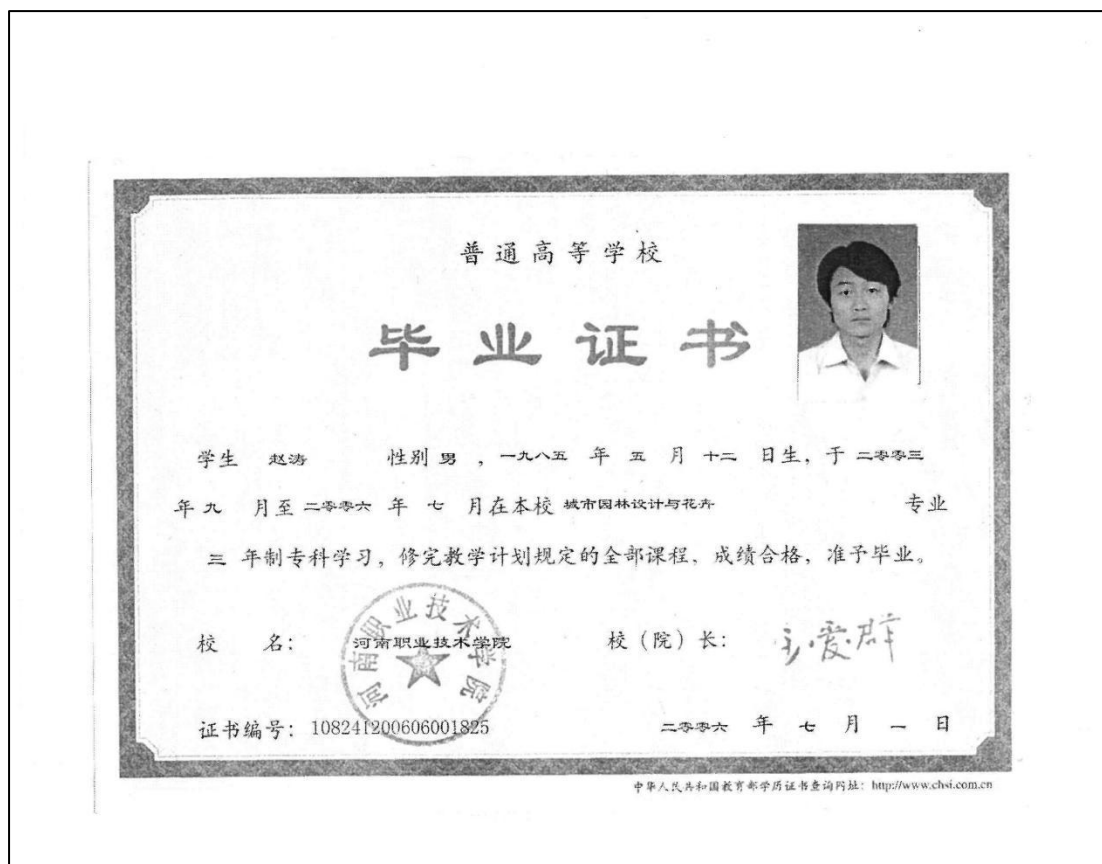 普通高等学校
毕业证书
学生 赵涛 性别 男 ，一九八五 年 五 月 十二 日生，于 二零零三
年 九 月至 二零零六 年 七 月在本校 城市园林设计与花卉 专业
三 年制专科学习，修完教学计划规定的全部课程，成绩合格，准予毕业。
校 名： 河南职业技术学院 校（院）长：
河南职业技术学院
证书编号：108241200606001825 二零零六 年 七 月 一 日
中华人民共和国教育部学历证书查询网址：http://www.chsi.com.cn